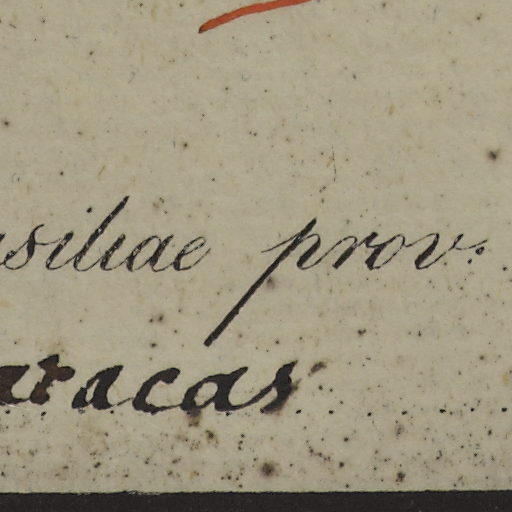 asiliae prov.
aracas